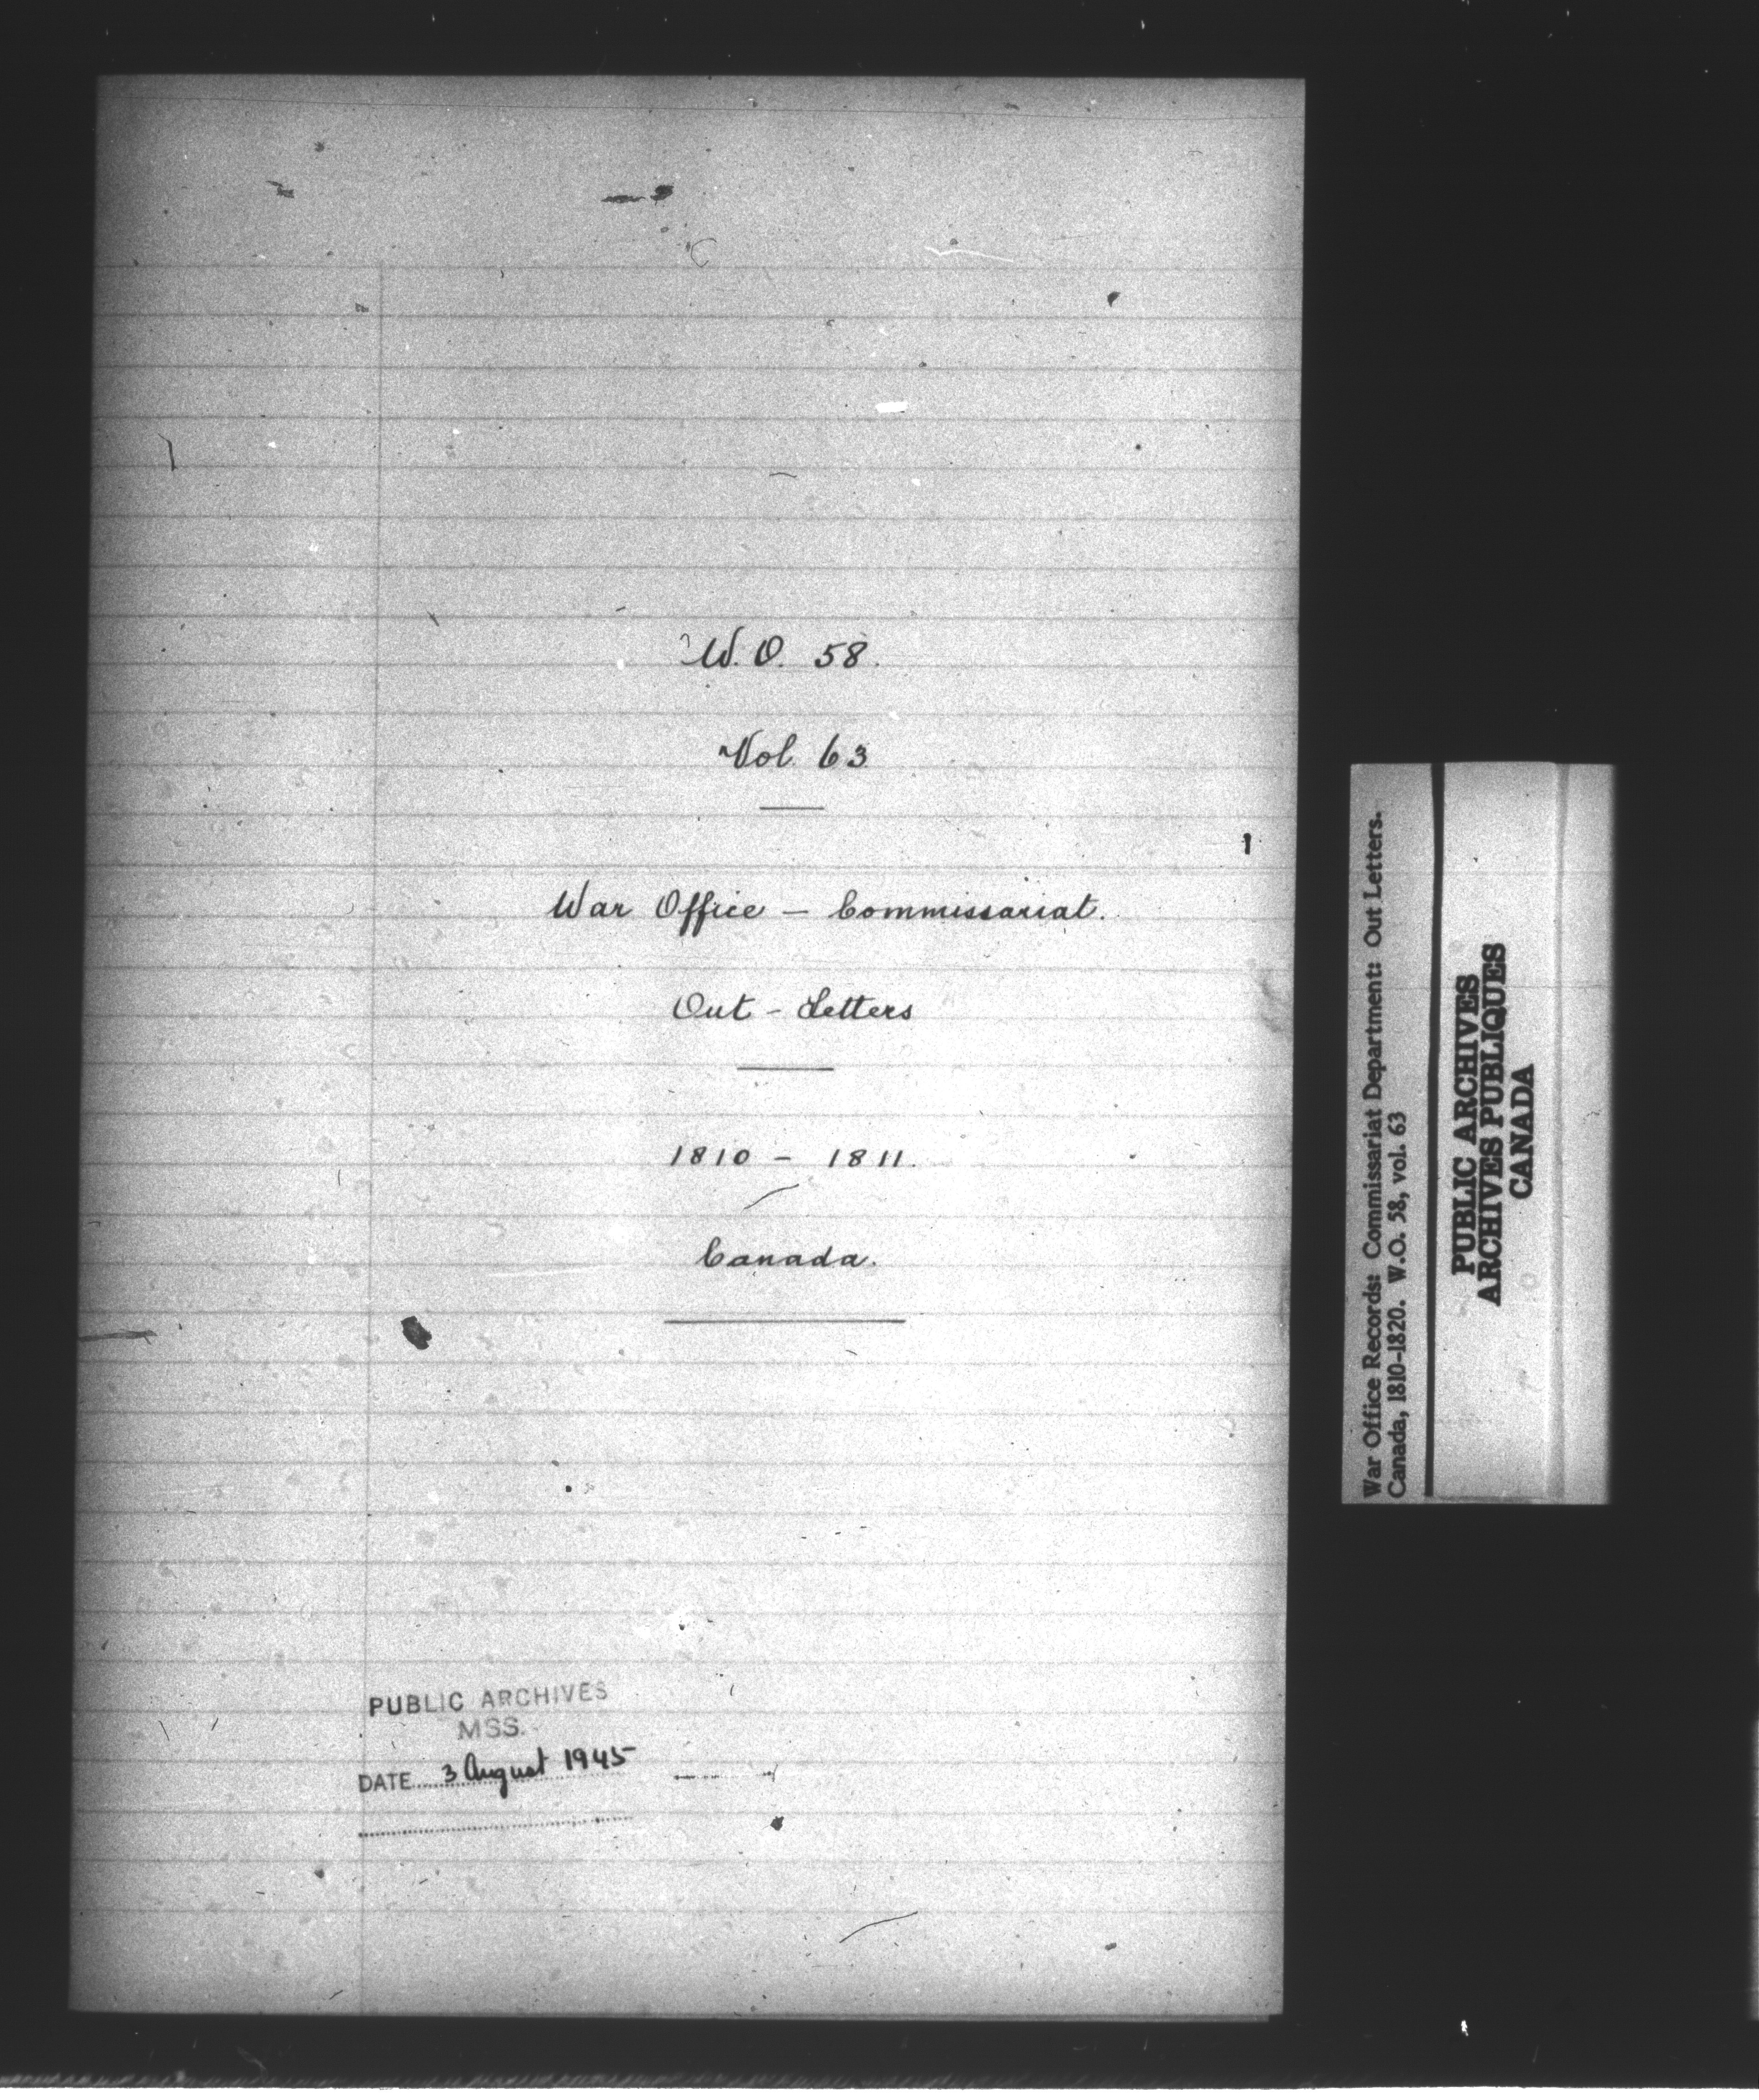 W.O. 58.
Vol. 63
War Office – Commissariat.
Out - Letters
1810 - 1811.
Canada.
PUBLIC ARCHIVES
MSS.
DATE 3 August 1945
War Office Records: Commissariat Department: Out Letters.
Canada, 1810-1820. W.O. 58, vol. 63
PUBLIC ARCHIVES
ARCHIVES PUBLIQUES
CANADA